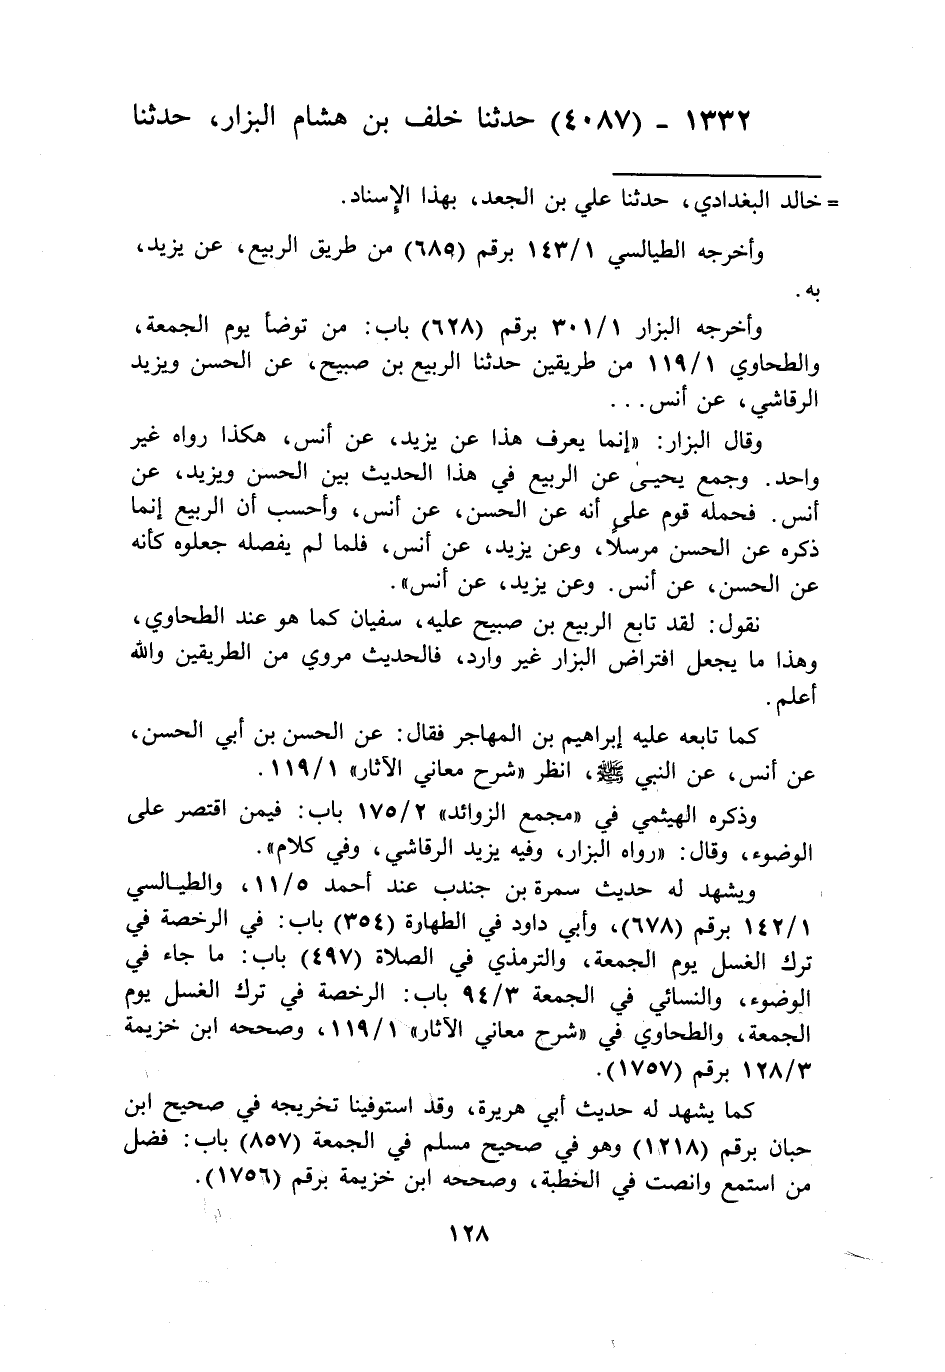 ١٣٣٢ ـ (٤٠٨٧) حدثنا خلف بن هشام البزار، حدثنا
= خالد البغدادي، حدثنا علي بن الجعد، بهذا الإسناد.
وأخرجه الطيالسي ١٤٣/١ برقم (٦٨٩) من طريق الربيع، عن يزيد،
به.
وأخرجه البزار ٣٠١/١ برقم (٦٢٨) باب: من توضأ يوم الجمعة،
والطحاوي ١١٩/١ من طريقين حدثنا الربيع بن صبيح، عن الحسن ويزيد
الرقاشي، عن أنس...
وقال البزار: «إنما يعرف هذا عن يزيد، عن أنس، هكذا رواه غير
واحد. وجمع يحيىٰ عن الربيع في هذا الحديث بين الحسن ويزيد، عن
أنس. فحمله قوم على أنه عن الحسن، عن أنس، وأحسب أن الربيع إنما
ذكره عن الحسن مرسلاً، وعن يزيد، عن أنس، فلما لم يفصله جعلوه كأنه
عن الحسن، عن أنس. وعن يزيد، عن أنس».
نقول: لقد تابع الربيع بن صبيح عليه، سفيان كما هو عند الطحاوي،
وهذا ما يجعل افتراض البزار غير وارد، فالحديث مروي من الطريقين والله
أعلم.
كما تابعه عليه إبراهيم بن المهاجر فقال: عن الحسن بن أبي الحسن،
عن أنس، عن النبي ﷺ، انظر «شرح معاني الآثار» ١١٩/١.
وذكره الهيثمي في «مجمع الزوائد» ١٧٥/٢ باب: فيمن اقتصر على
الوضوء، وقال: «رواه البزار، وفيه يزيد الرقاشي، وفي كلام».
ويشهد له حديث سمرة بن جندب عند أحمد ١١/٥، والطيالسي
١٤٢/١ برقم (٦٧٨)، وأبي داود في الطهارة (٣٥٤) باب: في الرخصة في
ترك الغسل يوم الجمعة، والترمذي في الصلاة (٤٩٧) باب: ما جاء في
الوضوء، والنسائي في الجمعة ٩٤/٣ باب: الرخصة في ترك الغسل يوم
الجمعة، والطحاوي في «شرح معاني الآثار» ١١٩/١، وصححه ابن خزيمة
١٢٨/٣ برقم (١٧٥٧).
كما يشهد له حديث أبي هريرة، وقد استوفينا تخريجه في صحيح ابن
حبان برقم (١٢١٨) وهو في صحيح مسلم في الجمعة (٨٥٧) باب: فضل
من استمع وانصت في الخطبة، وصححه ابن خزيمة برقم (١٧٥٦).
١٢٨